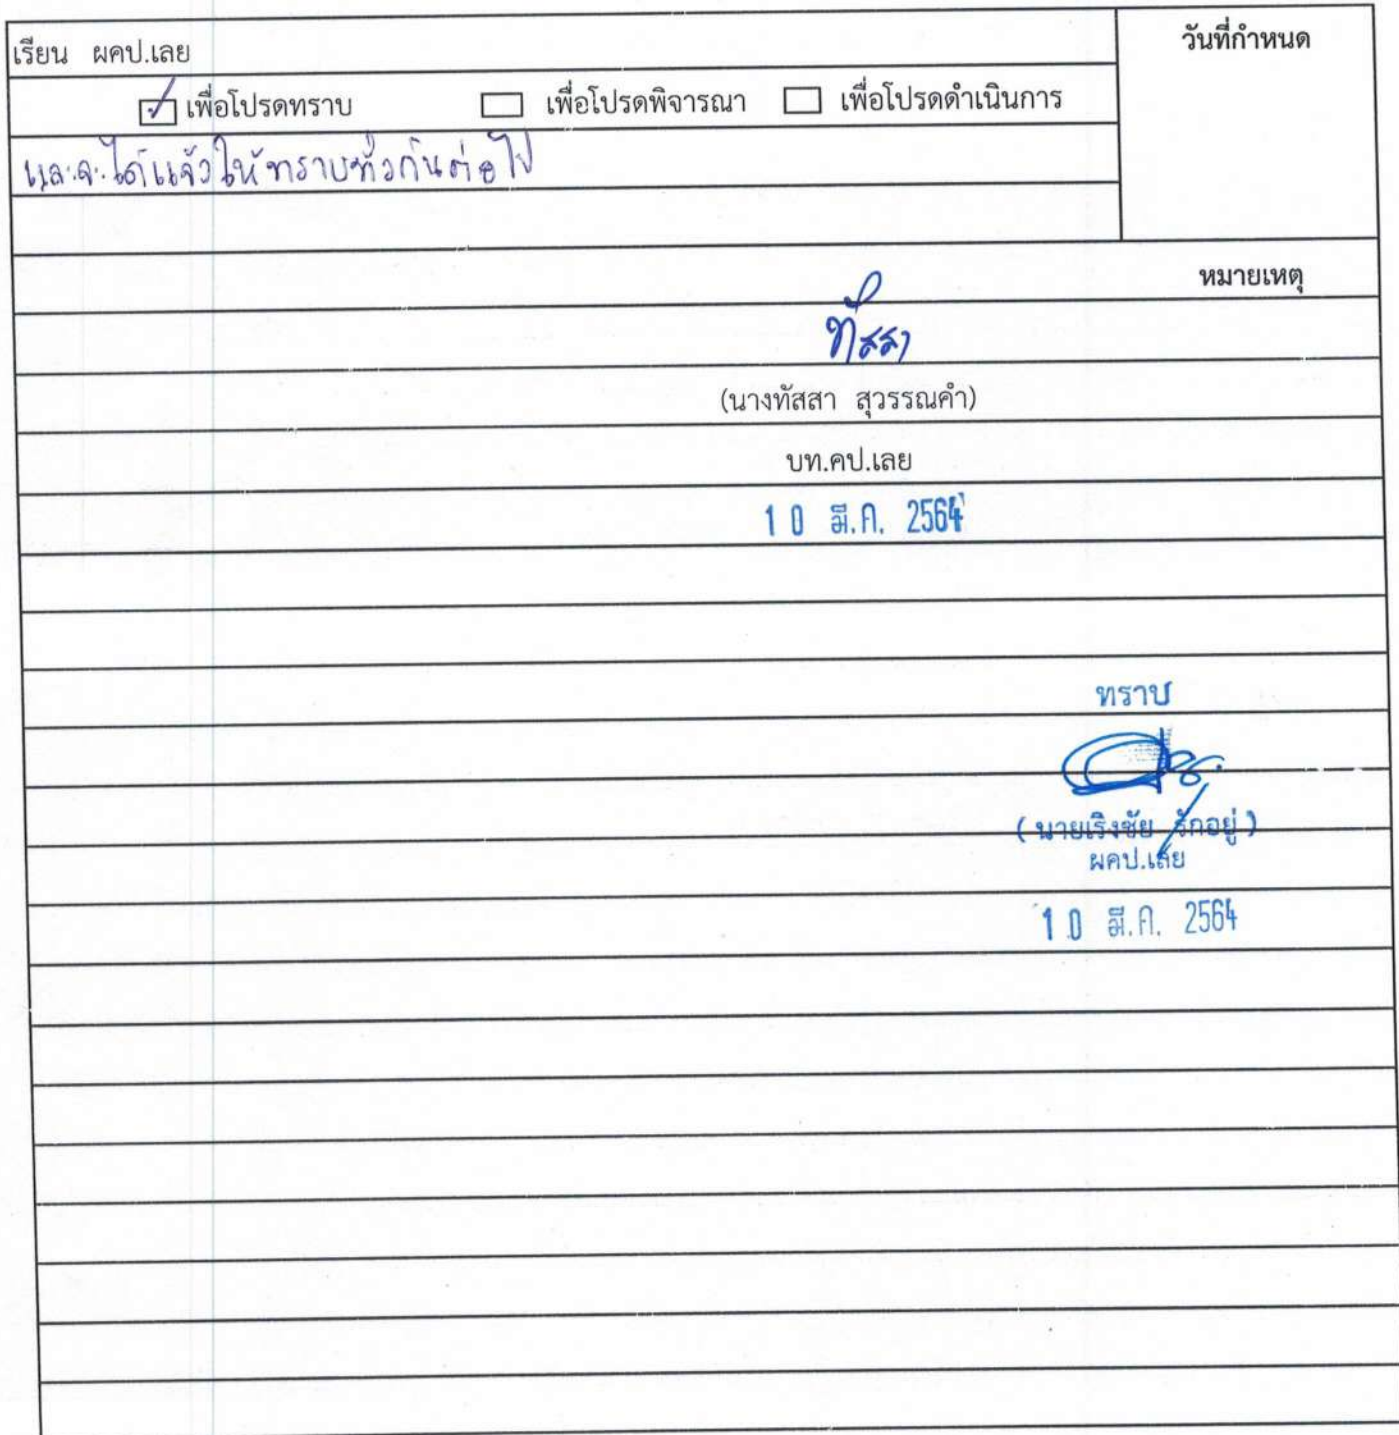 เรียน ผคป.เลย
วันที่กำหนด
เพื่อโปรดทราบ เพื่อโปรดพิจารณา เพื่อโปรดดำเนินการ
และจะได้แจ้งให้ทราบทั่วกันต่อไป
หมายเหตุ
ทัสสา
(นางทัสสา สุวรรณคำ)
บท.คป.เลย
10 มี.ค. 2564
ทราบ
(นายเริงชัย รักอยู่)
ผคป.เลย
10 มี.ค. 2564